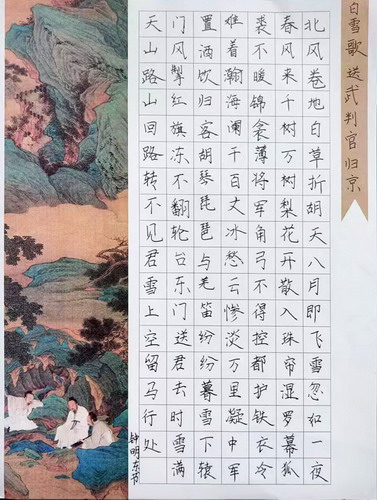 白雪歌 送武判官归京
北风卷地白草折胡天八月即飞雪忽如一夜
春风来千树万树梨花开散入珠帘湿罗幕狐
裘不暖锦衾薄将军角弓不得控都护铁衣冷
难着瀚海澜干百丈冰愁云惨淡万里凝中军
置酒饮归客胡琴琵琶与羌笛纷纷暮雪下辕
门风掣红旗冻不翻轮台东门送君去时雪满
天山路山回路转不见君雪上空留马行处
钟明东